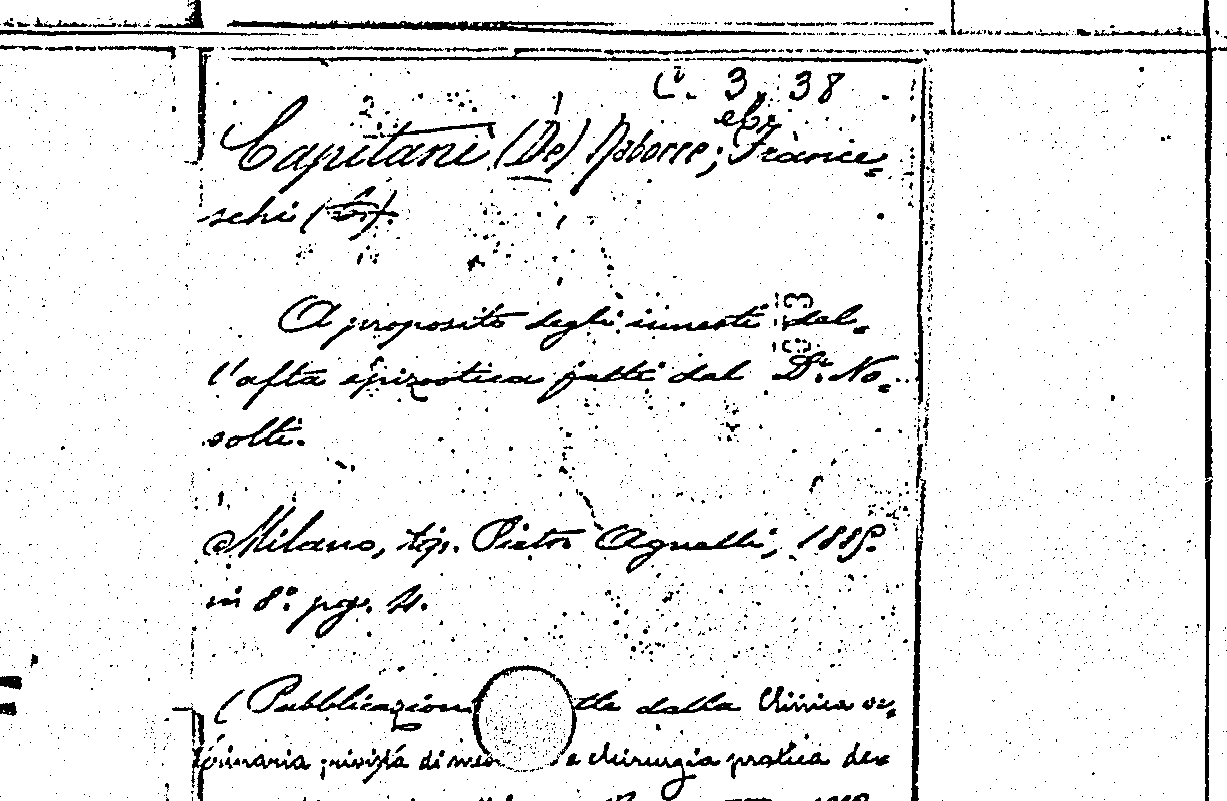 C. 3. 38
Capitani (De) Naborre; France=
schi
A proposito degli innesti del=
l'afta epizootica fatti dal Dr. No=
solti.
Milano, tip. Pietro Agnelli, 1885.
in 8.° pag. 4.
(Pubblicazion tte dalla Clinica ve=
rinaria, rivista di med e chirurgia pratica de